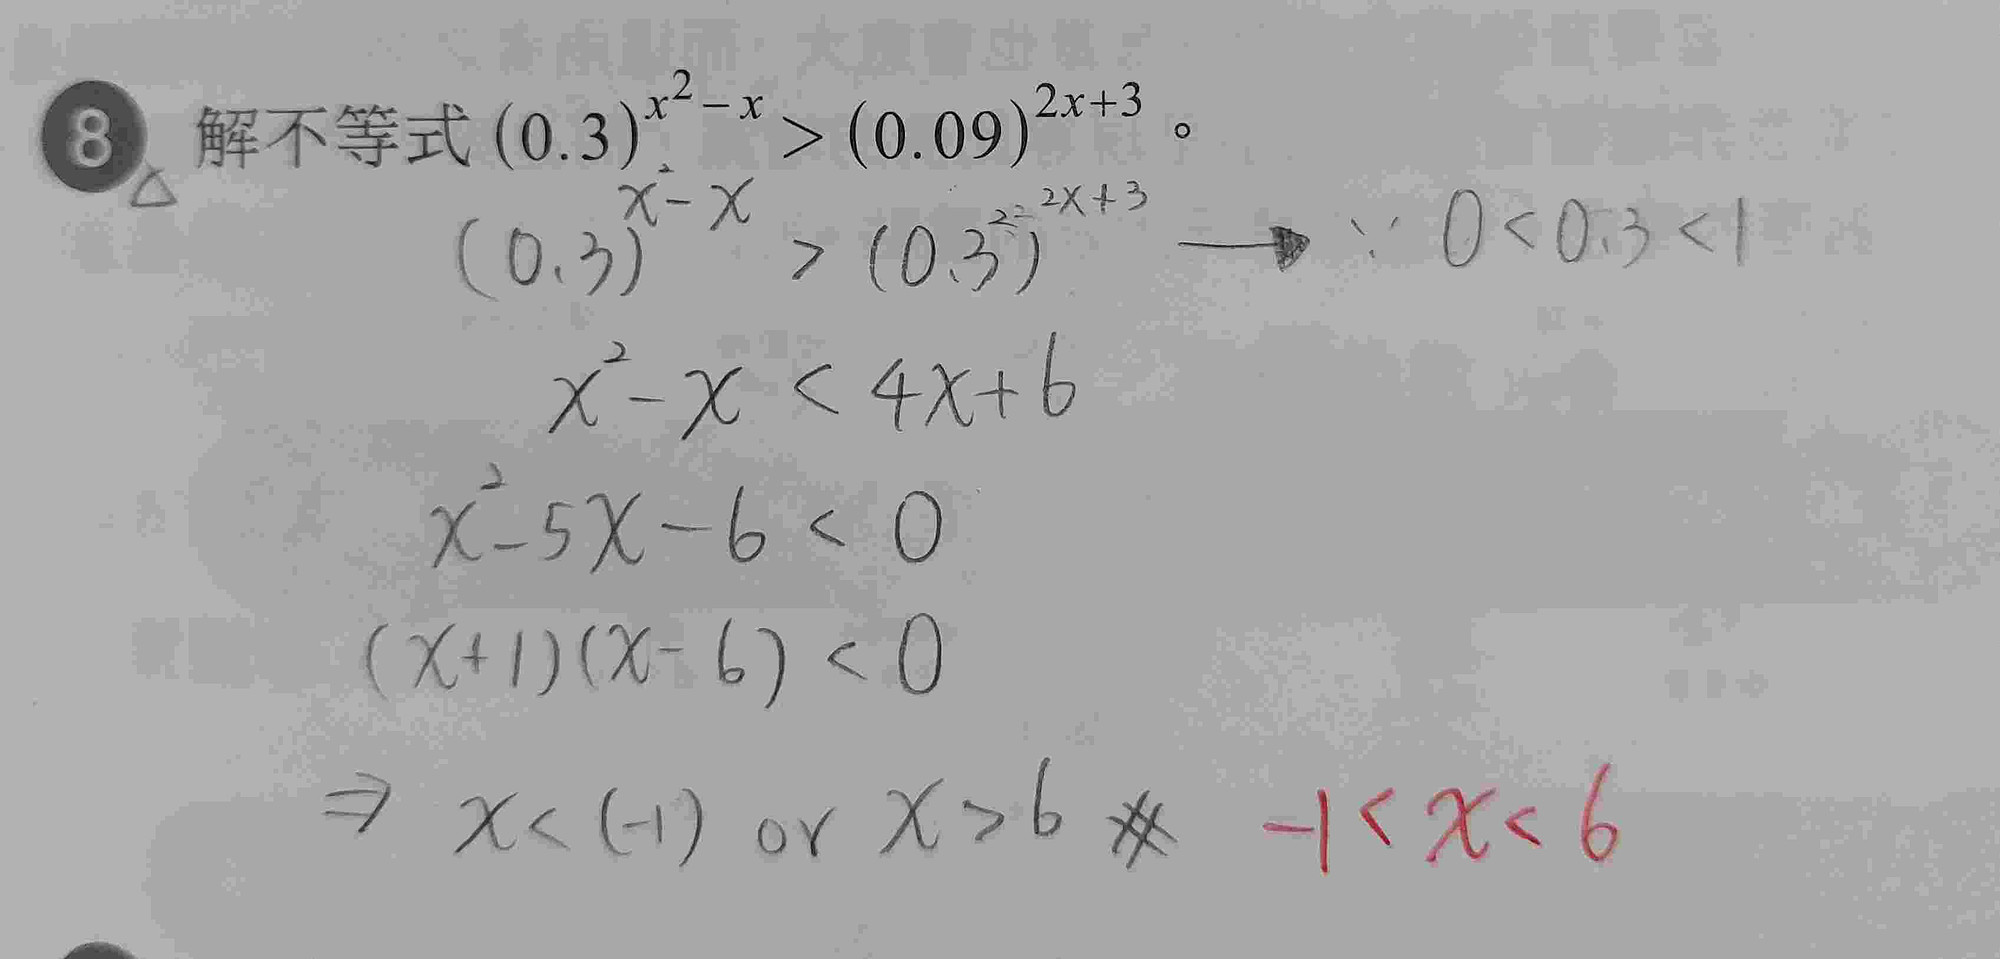 8 解不等式 (0.3)^{x^2-x} > (0.09)^{2x+3}。
△
(0.3)^{x^2-x} > (0.3^2)^{2x+3} → ∵ 0 < 0.3 < 1
x^2 - x < 4x + 6
x^2 - 5x - 6 < 0
(x+1)(x-6) < 0
⇒ x < (-1) or x > 6 ※ -1 < x < 6